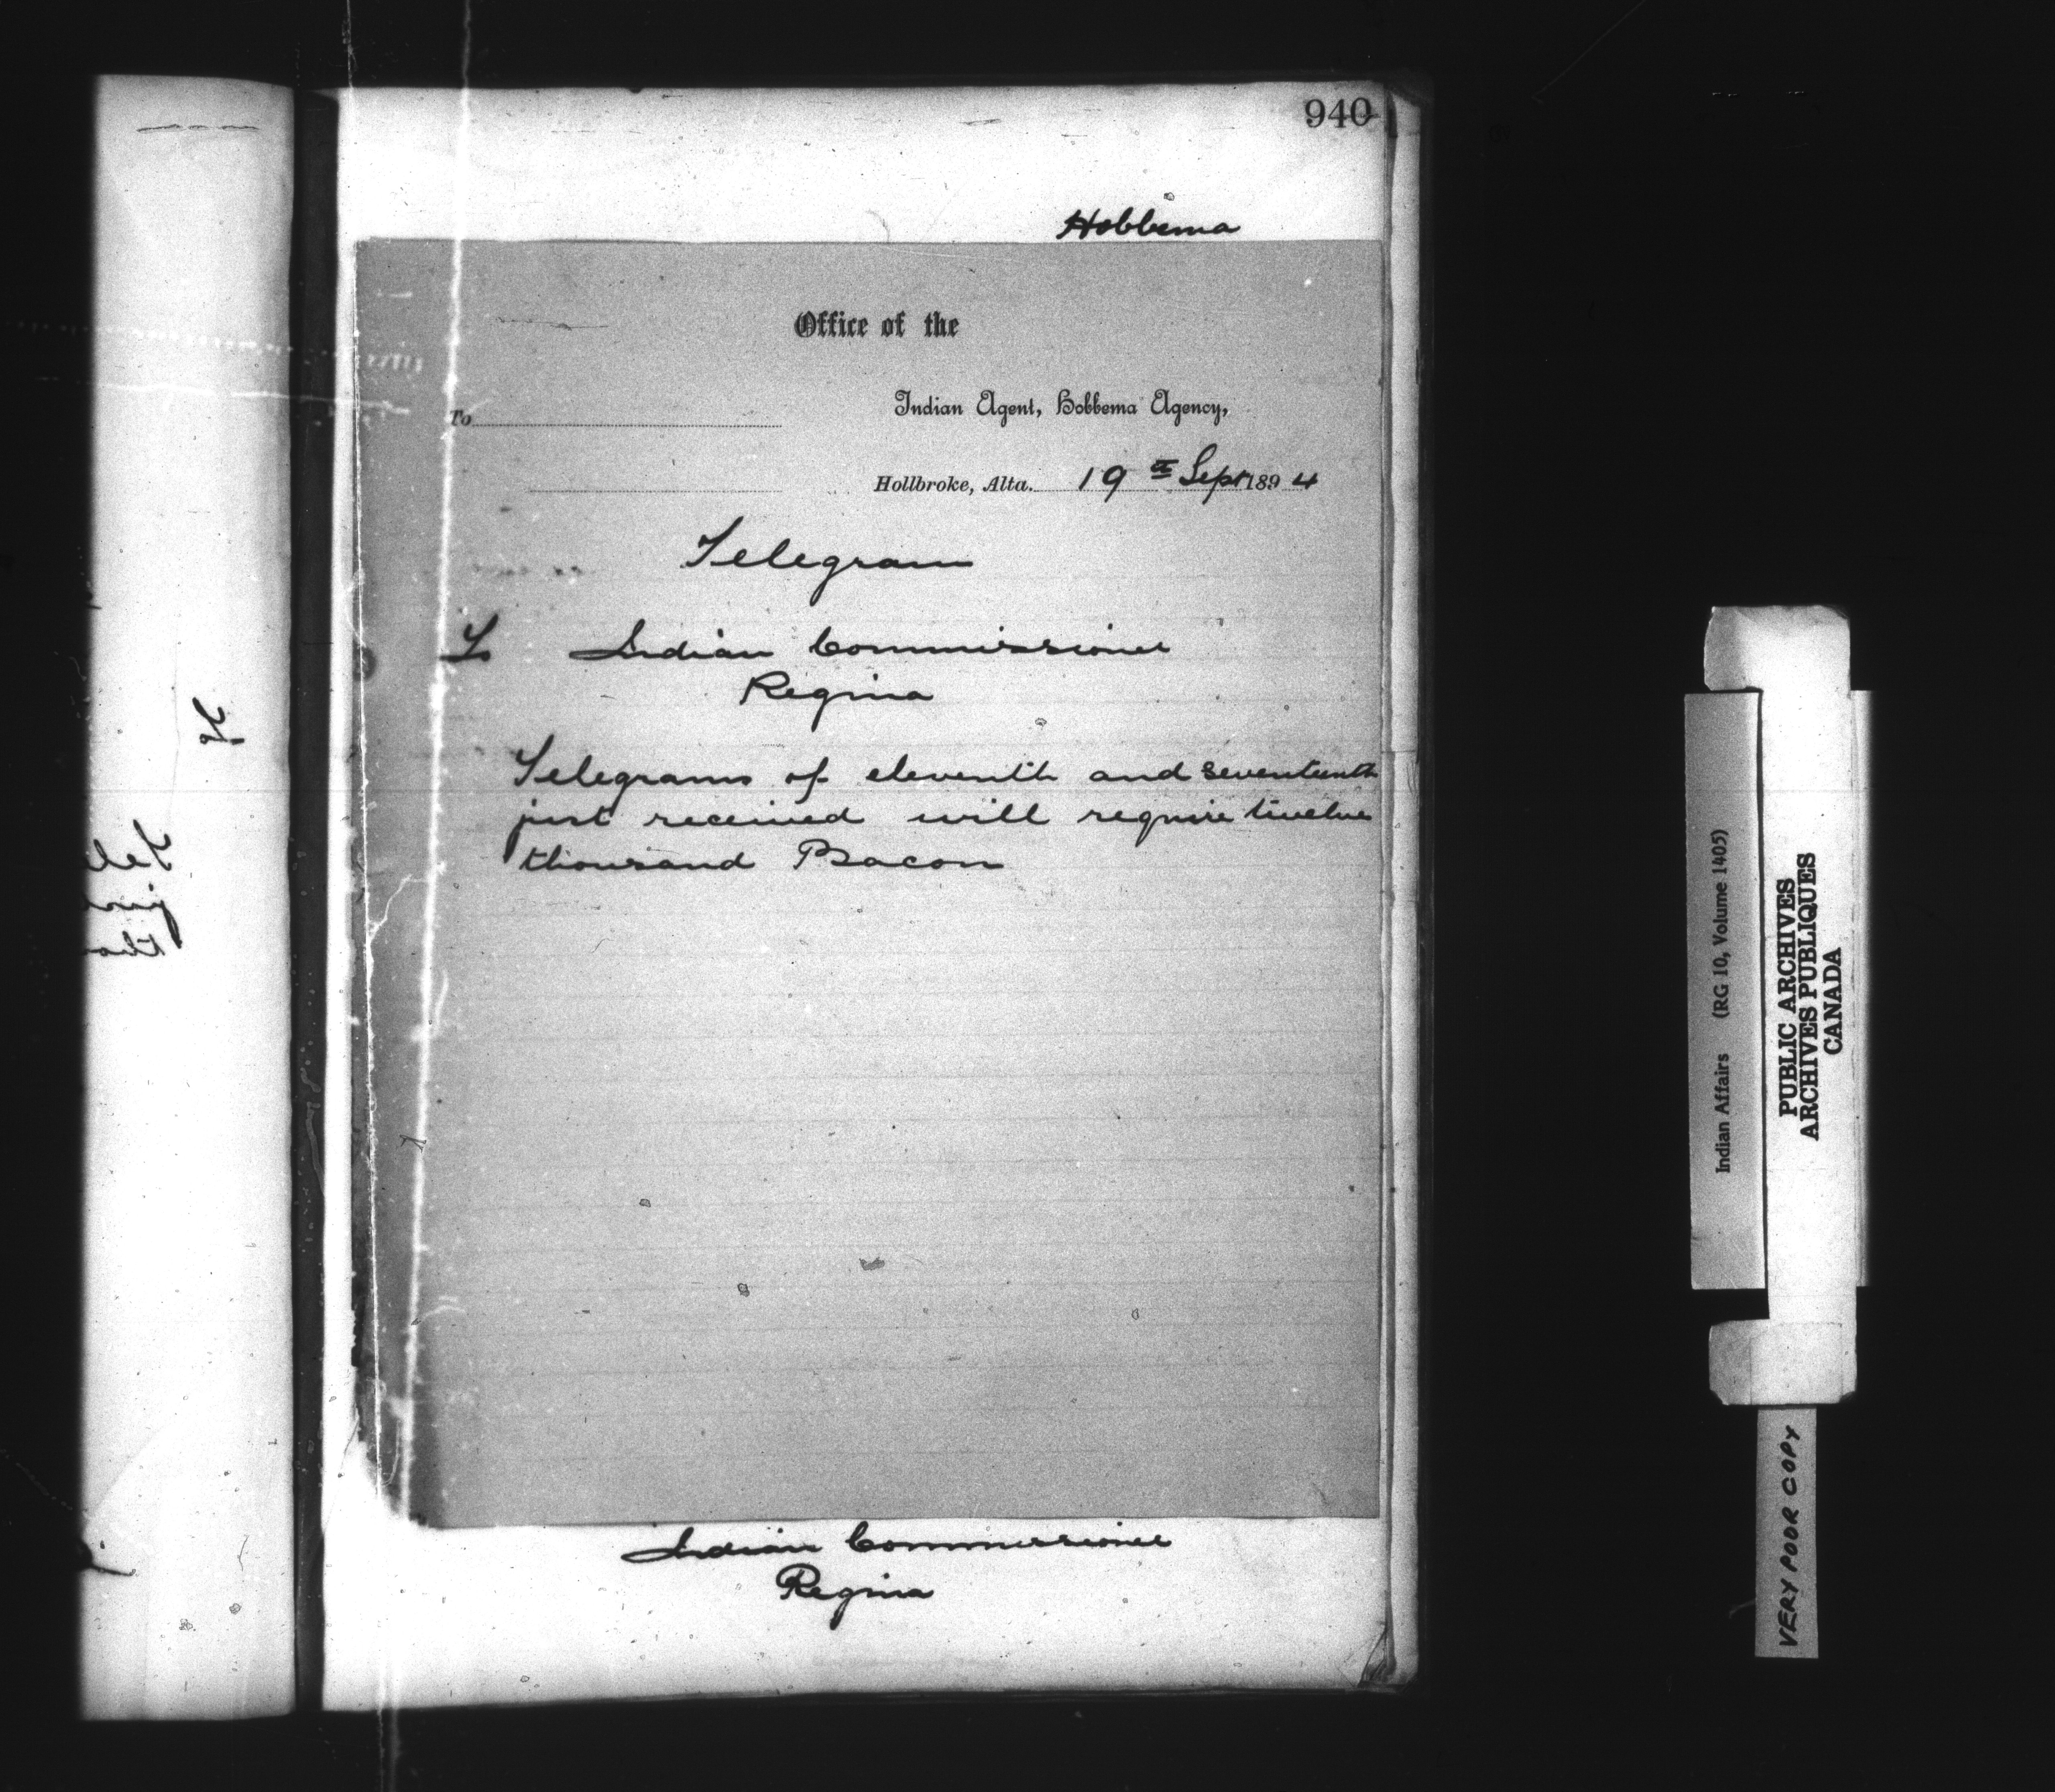 940
Hobbema
Office of the
Indian Agent, Hobbema Agency,
To
Hollbroke, Alta. 19th Sept 1894
Telegram
To Indian Commissioner
Regina
Telegrams of eleventh and seventeenth
just received will require twelve
thousand Bacon
Indian Commissioner
Regina
Indian Affairs (RG 10, Volume 1405)
PUBLIC ARCHIVES
ARCHIVES PUBLIQUES
CANADA
VERY POOR COPY